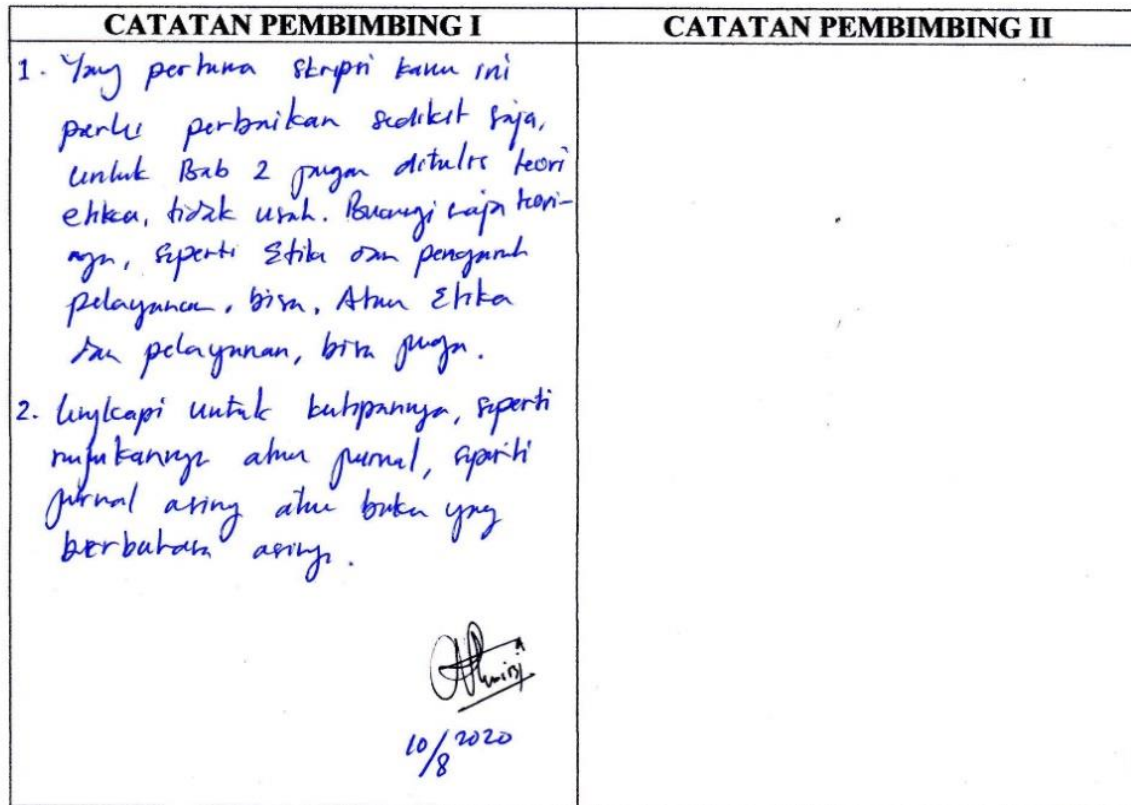 CATATAN PEMBIMBING I
CATATAN PEMBIMBING II
1. Yang pertama skripsi kamu ini
perlu perbaikan sedikit saja,
untuk Bab 2 jangan ditulis teori
etika, tidak usah. Buangi saja teori-
nya, seperti Etika dan pengaruh
pelayanan, bisa. Atau Etika
dan pelayanan, bisa juga.
2. Lengkapi untuk kutipannya, seperti
rujukannya atau jurnal, seperti
jurnal asing atau buku yang
berbahasa asing.
10/8 2020